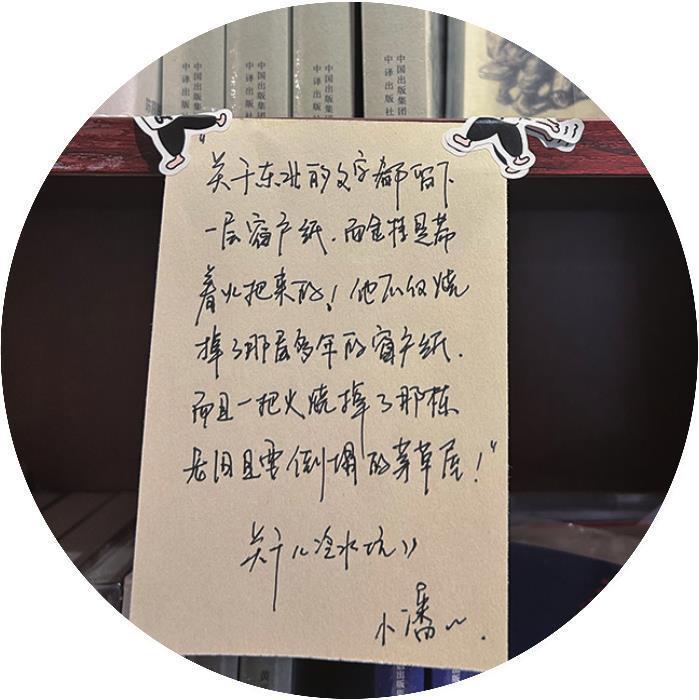 中国出版集团
中译出版社
中国出版集团
中译出版社
中国出版集团
中译出版社
中国出版集团
中译出版社
“关于东北的文字都留下
一层窗户纸.而金桂是带
着火把来的！他不仅烧
掉了那层多年的窗户纸.
而且一把火烧掉了那栋
老旧且要倒塌的茅草屋！”
关于《冷水坑》
小潘~.